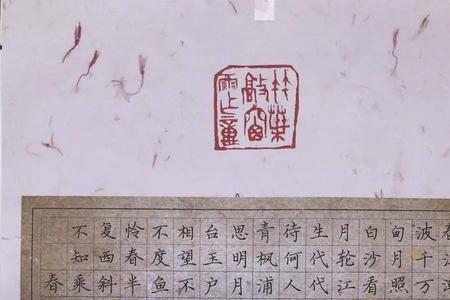 竹葉
敲窗
波千万
甸月照
白沙看
月轮江
生代代
待何人
青枫浦
思明月
台玉户
相望不
不度鱼
怜春半
复西斜
不知乘
春